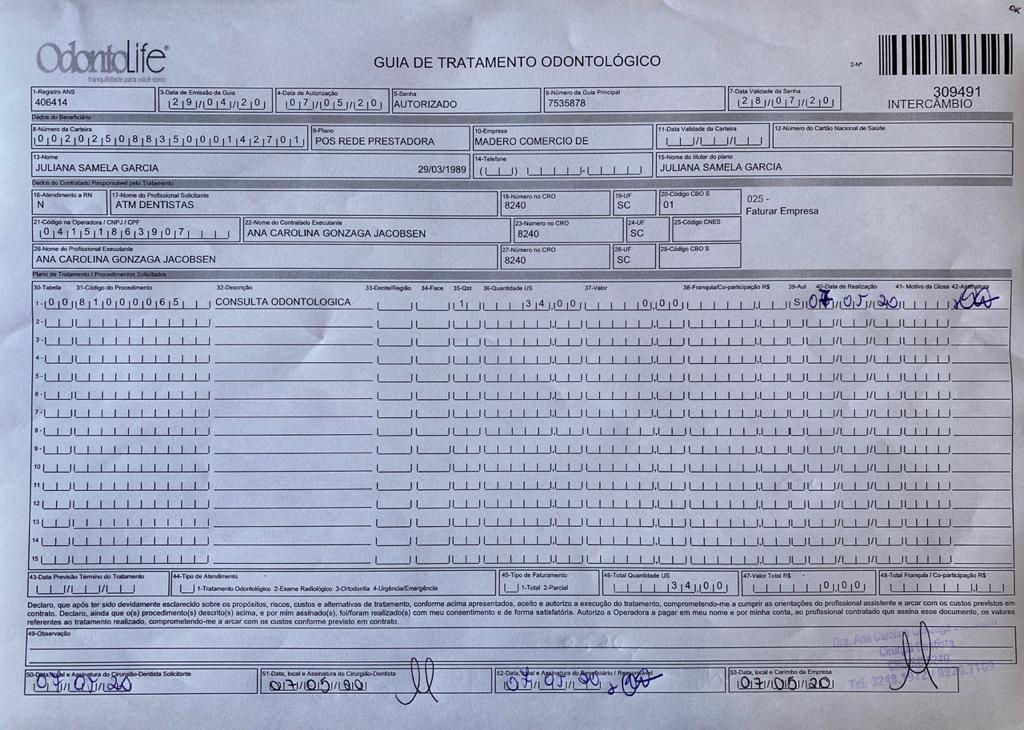 OK
OdontoLife
tranquilidade para você sorrir
GUIA DE TRATAMENTO ODONTOLÓGICO
2-Nº
309491
INTERCÂMBIO
1-Registro ANS 3-Data de Emissão da Guia 4-Data de Autorização 5-Senha 6-Número da Guia Principal 7-Data Validade da Senha
406414 29/04/20 07/05/20 AUTORIZADO 7535878 28/07/20
Dados do Beneficiário
8-Número da Carteira 9-Plano 10-Empresa 11-Data Validade da Carteira 12-Número do Cartão Nacional de Saúde
00202508835000142701 POS REDE PRESTADORA MADERO COMERCIO DE
13-Nome 14-Telefone 15-Nome do titular do plano
JULIANA SAMELA GARCIA 29/03/1989 JULIANA SAMELA GARCIA
Dados do Contratado Responsável pelo Tratamento
16-Atendimento a RN 17-Nome do Profissional Solicitante 18-Número no CRO 19-UF 20-Código CBO S
N ATM DENTISTAS 8240 SC 01
025 -
Faturar Empresa
21-Código na Operadora / CNPJ / CPF 22-Nome do Contratado Executante 23-Número no CRO 24-UF 25-Código CNES
04151863907 ANA CAROLINA GONZAGA JACOBSEN 8240 SC
26-Nome do Profissional Executante 27-Número no CRO 28-UF 29-Código CBO S
ANA CAROLINA GONZAGA JACOBSEN 8240 SC
Plano de Tratamento / Procedimentos Solicitados
30-Tabela 31-Código do Procedimento 32-Descrição 33-Dente/Região 34-Face 35-Qtd 36-Quantidade US 37-Valor 38-Franquia/Co-participação R$ 39-Aut 40-Data de Realização 41- Motivo da Glosa 42-Assinatura
1- 00 81000065 CONSULTA ODONTOLOGICA 1 34,00 0,00 S 07/05/20
2-
3-
4-
5-
6-
7-
8-
9-
10
11
12
13
14
15
43-Data Previsão Término do Tratamento 44-Tipo de Atendimento 45-Tipo de Faturamento 46-Total Quantidade US 47-Valor Total R$ 48-Total Franquia / Co-participação R$
1-Tratamento Odontológico 2-Exame Radiológico 3-Ortodontia 4-Urgência/Emergência 1-Total 2-Parcial 34,00 0,00
Declaro, que após ter sido devidamente esclarecido sobre os propósitos, riscos, custos e alternativas de tratamento, conforme acima apresentados, aceito e autorizo a execução do tratamento, comprometendo-me a cumprir as orientações do profissional assistente e arcar com os custos previstos em
contrato. Declaro, ainda que o(s) procedimento(s) descrito(s) acima, e por mim assinado(s), foi/foram realizado(s) com meu consentimento e de forma satisfatória. Autorizo a Operadora a pagar em meu nome e por minha conta, ao profissional contratado que assina esse documento, os valores
referentes ao tratamento realizado, comprometendo-me a arcar com os custos conforme previsto em contrato.
49-Observação
Dra. Ana Carolina Gonzaga
Cirurgiã Dentista
50-Data, local e Assinatura do Cirurgião-Dentista Solicitante 51-Data, local e Assinatura do Cirurgião-Dentista 52-Data, local e Assinatura do Beneficiário / Responsável 53-Data, local e Carimbo da Empresa
07/05/20 07/05/20 07/05/20 07/05/20